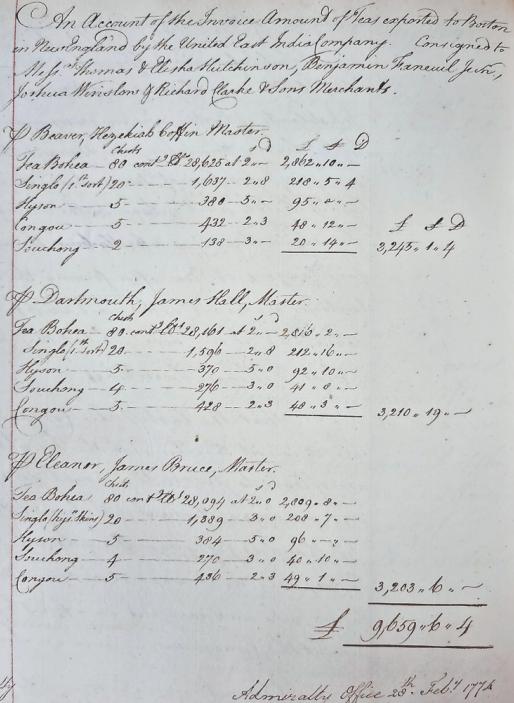 An Account of the Invoice Amount of Teas exported to Boston
in New England by the United East India Company. Consigned to
Messrs Thomas & Elisha Hutchinson, Benjamin Faneuil Junr,
Joshua Winslow & Richard Clarke & Sons Merchants.
P Beaver, Hezekiah Coffin Master.
Chests s D £ S D
Tea Bohea 80 contg lbs 28,625 at 2 „ — 2,862 „ 10 „ —
Singlo (1st Sort) 20 1,637 2 „ 8 218 „ 5 „ 4
Hyson 5 380 5 „ — 95 „ „ —
Congou 5 432 2 „ 3 48 „ 12 „ — £ S D
Souchong 2 138 3 „ — 20 „ 14 „ — 3,245 „ 1 „ 4
P Dartmouth, James Hall, Master.
Chests s D
Tea Bohea 80 contg lbs 28,161 at 2 „ — 2,816 „ 2 „ —
Singlo (1st Sort) 20 1,596 2 „ 8 212 „ 16 „ —
Hyson 5 370 5 „ 0 92 „ 10 „ —
Souchong 4 276 3 „ 0 41 „ 8 „ —
Congou 5 428 2 „ 3 48 „ 3 „ — 3,210 „ 19 „ —
P Eleanor, James Bruce, Master.
Chests s D
Tea Bohea 80 contg lbs 28,094 at 2 „ 0 2,809 „ 8 „ —
Singlo (Hyn Skins) 20 1,389 3 „ 0 208 „ 7 „ —
Hyson 5 384 5 „ 0 96 „ „ —
Souchong 4 270 3 „ 0 40 „ 10 „ —
Congou 5 436 2 „ 3 49 „ 1 „ — 3,203 „ 6 „ —
£ 9,659 „ 6 „ 4
Admiralty Office 28th Feby 1774